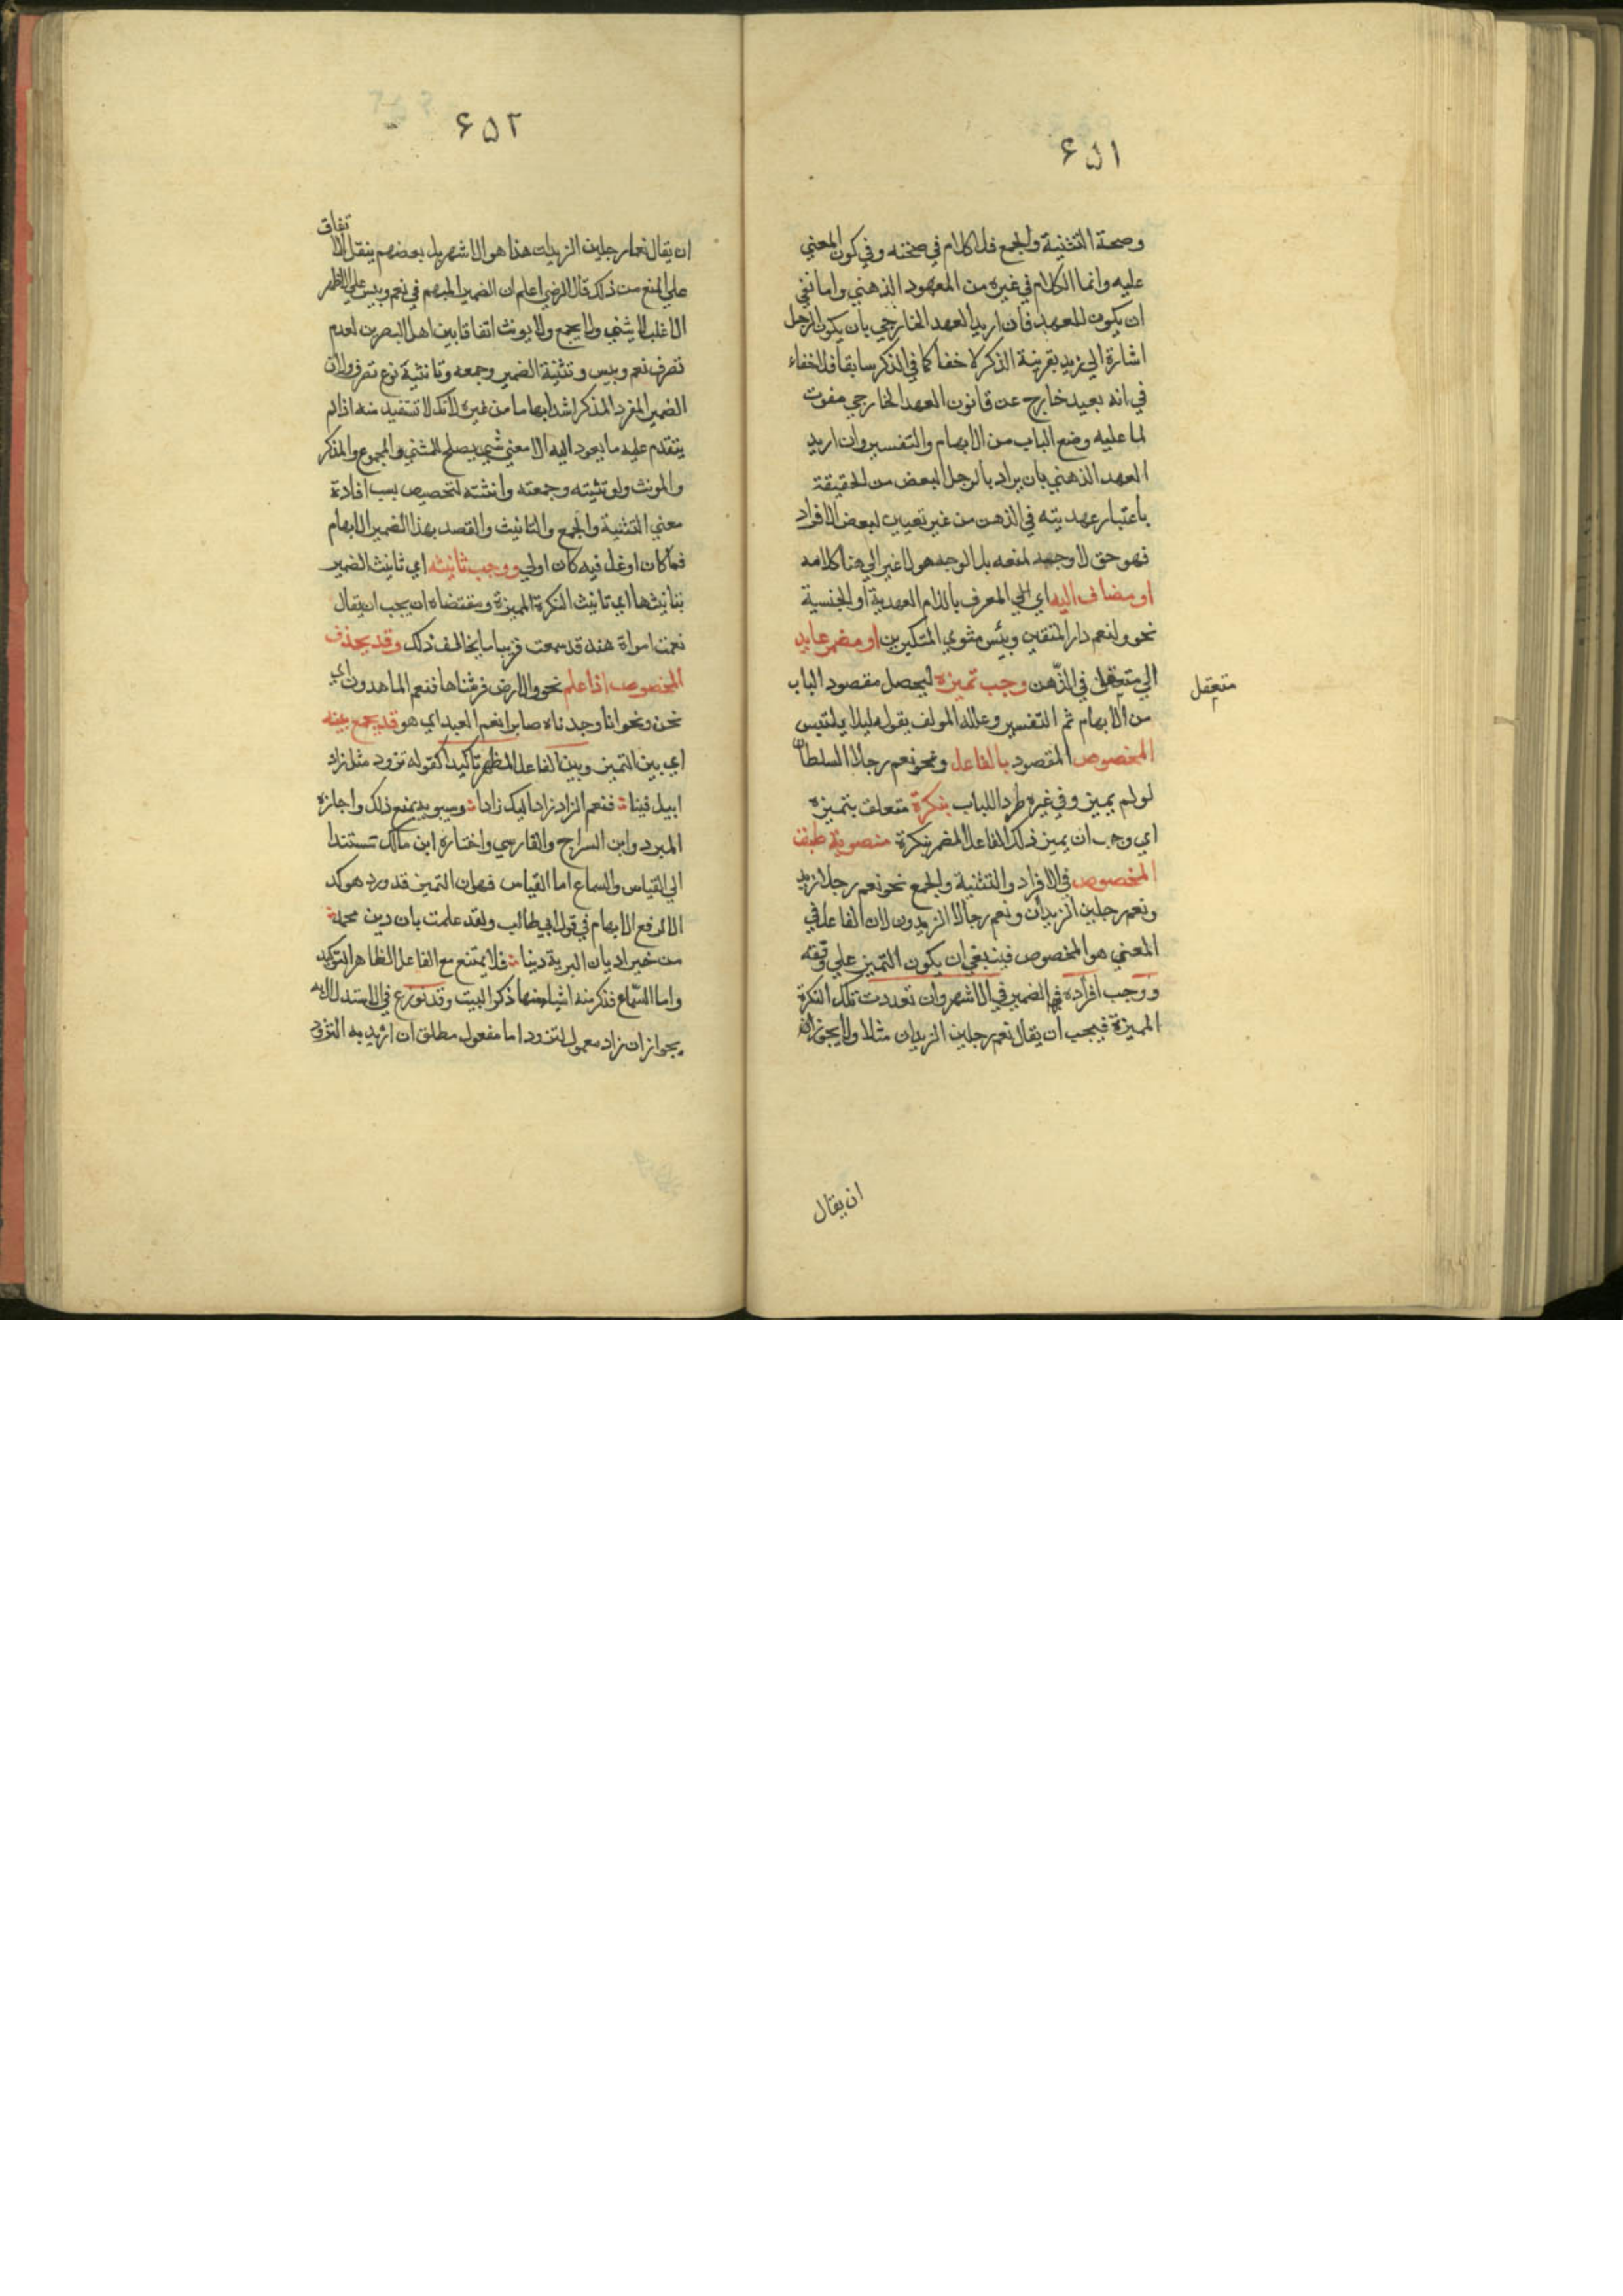 ٦٥١
وصحة التثنية والجمع فلا كلام في صحته وفي كون المعني
عليه وانما الكلام في غيره من المعهود الذهني واما نفي
ان يكون للعهد فان اريد العهد الخارجي بان يكون الرجل
اشارة الي زيد بقرينة الذكر لا خفا كما في الذكر سابقا فلا خفاء
في انه بعيد خارج عن قانون العهد الخارجي مفوت
لما عليه وضع الباب من الابهام والتفسير وان اريد
العهد الذهني بان يراد بالرجل البعض من الحقيقة
باعتبار عهديته في الذهن من غير تعيين لبعض الافراد
فهو حق لا وجه لمنعه بل الوجه هو لا غير الي هنا كلامه
او مضاف اليه اي الي المعرف باللام العهدية او الجنسية
نحو ولنعم دار المتقين وبئس مثوي المتكبرين او مضمر عايد
الي متعقل في الذهن وجب تميزه ليحصل مقصود الباب
متعقل
من الابهام ثم التفسير وعلله المولف بقوله ليلا يلتبس
المخصوص المقصود بالفاعل ونحو نعم رجلا السلطان
لو لم يميز وفي غيره طرد اللباب بنكرة متعلق بتميزه
اي وجب ان يميز ذلك الفاعل المضمر بنكرة منصوبة طبق
المخصوص في الافراد والتثنية والجمع نحو نعم رجلا زيد
ونعم رجلين الزيدان ونعم رجالا الزيدون لان الفاعل في
المعني هو المخصوص فينبغي ان يكون التميز علي وقفه
ووجب افراده اي الضمير في الاشهر وان تعددت تلك النكرة
المميزة فيجب ان يقال نعم رجلين الزيدان مثلا ولا يجوز
ان يقال
٦٥٢
ان يقال نعما رجلين الزيدان هذا هو الاشهر بل بعضهم ينقل الا
تفاق
علي المنع من ذلك قال الرضي اعلم ان الضمير المبهم في نعم وبيس علي الاظهر
الاغلب لا يثني ولا يجمع ولا يونث اتفاقا بين اهل البصرين لعدم
تصرف نعم وبيس وتثنية الضمير وجمعه وتانثية نوع تصرف ولان
الضمير المفرد المذكر اشد ابهاما من غيره لانك لا تستفيد منه اذا لم
يتقدم عليه ما يعود اليه الا معني شي يصلح للمثني والمجموع والمذكر
والمونث ولو تثيته وجمعته وانثته لتخصيص بسب افادة
معني التثنية والجمع والتانيث والقصد بهذا الضمير الابهام
فما كان اوغل فيه كان اولي ووجب تانيثه اي تانيث الضمير
بتانيثها اي تانيث النكرة المميزة ومقتضاه ان يجب ان يقال
نعمت امراة هند قد سمعت قريبا ما يخالف ذلك وقد يحذف
المخصوص اذا علم نحو والارض فرشناها فنعم الماهدون اي
نحن ونحو انا وجدناه صابرا نعم العبد اي هو قد يجمع بينه
اي بين التميز وبين الفاعل المظهر تاكيدا كقوله تزود مثل زاد
ابيل فينا فنعم الزاد زاد اليك زادا وسيبويه يمنع ذلك واجازه
المبرد وابن السراج والفارسي واختاره ابن مالك تستندا
الي القياس والسماع اما القياس فهوان التميز قد ورد هو كد
الا لرفع الابهام في قول ابي طالب ولقد علمت بان دين محمد
من خير اديان البرية دينا فلا يمتنع مع الفاعل الظاهر التوكيد
واما السماع فذكر منه اشيا منها ذكر البيت وقد نوزع في الاستدلال به
بجواز ان زاد معمول لتزود اما مفعول مطلق ان اريد به التزود